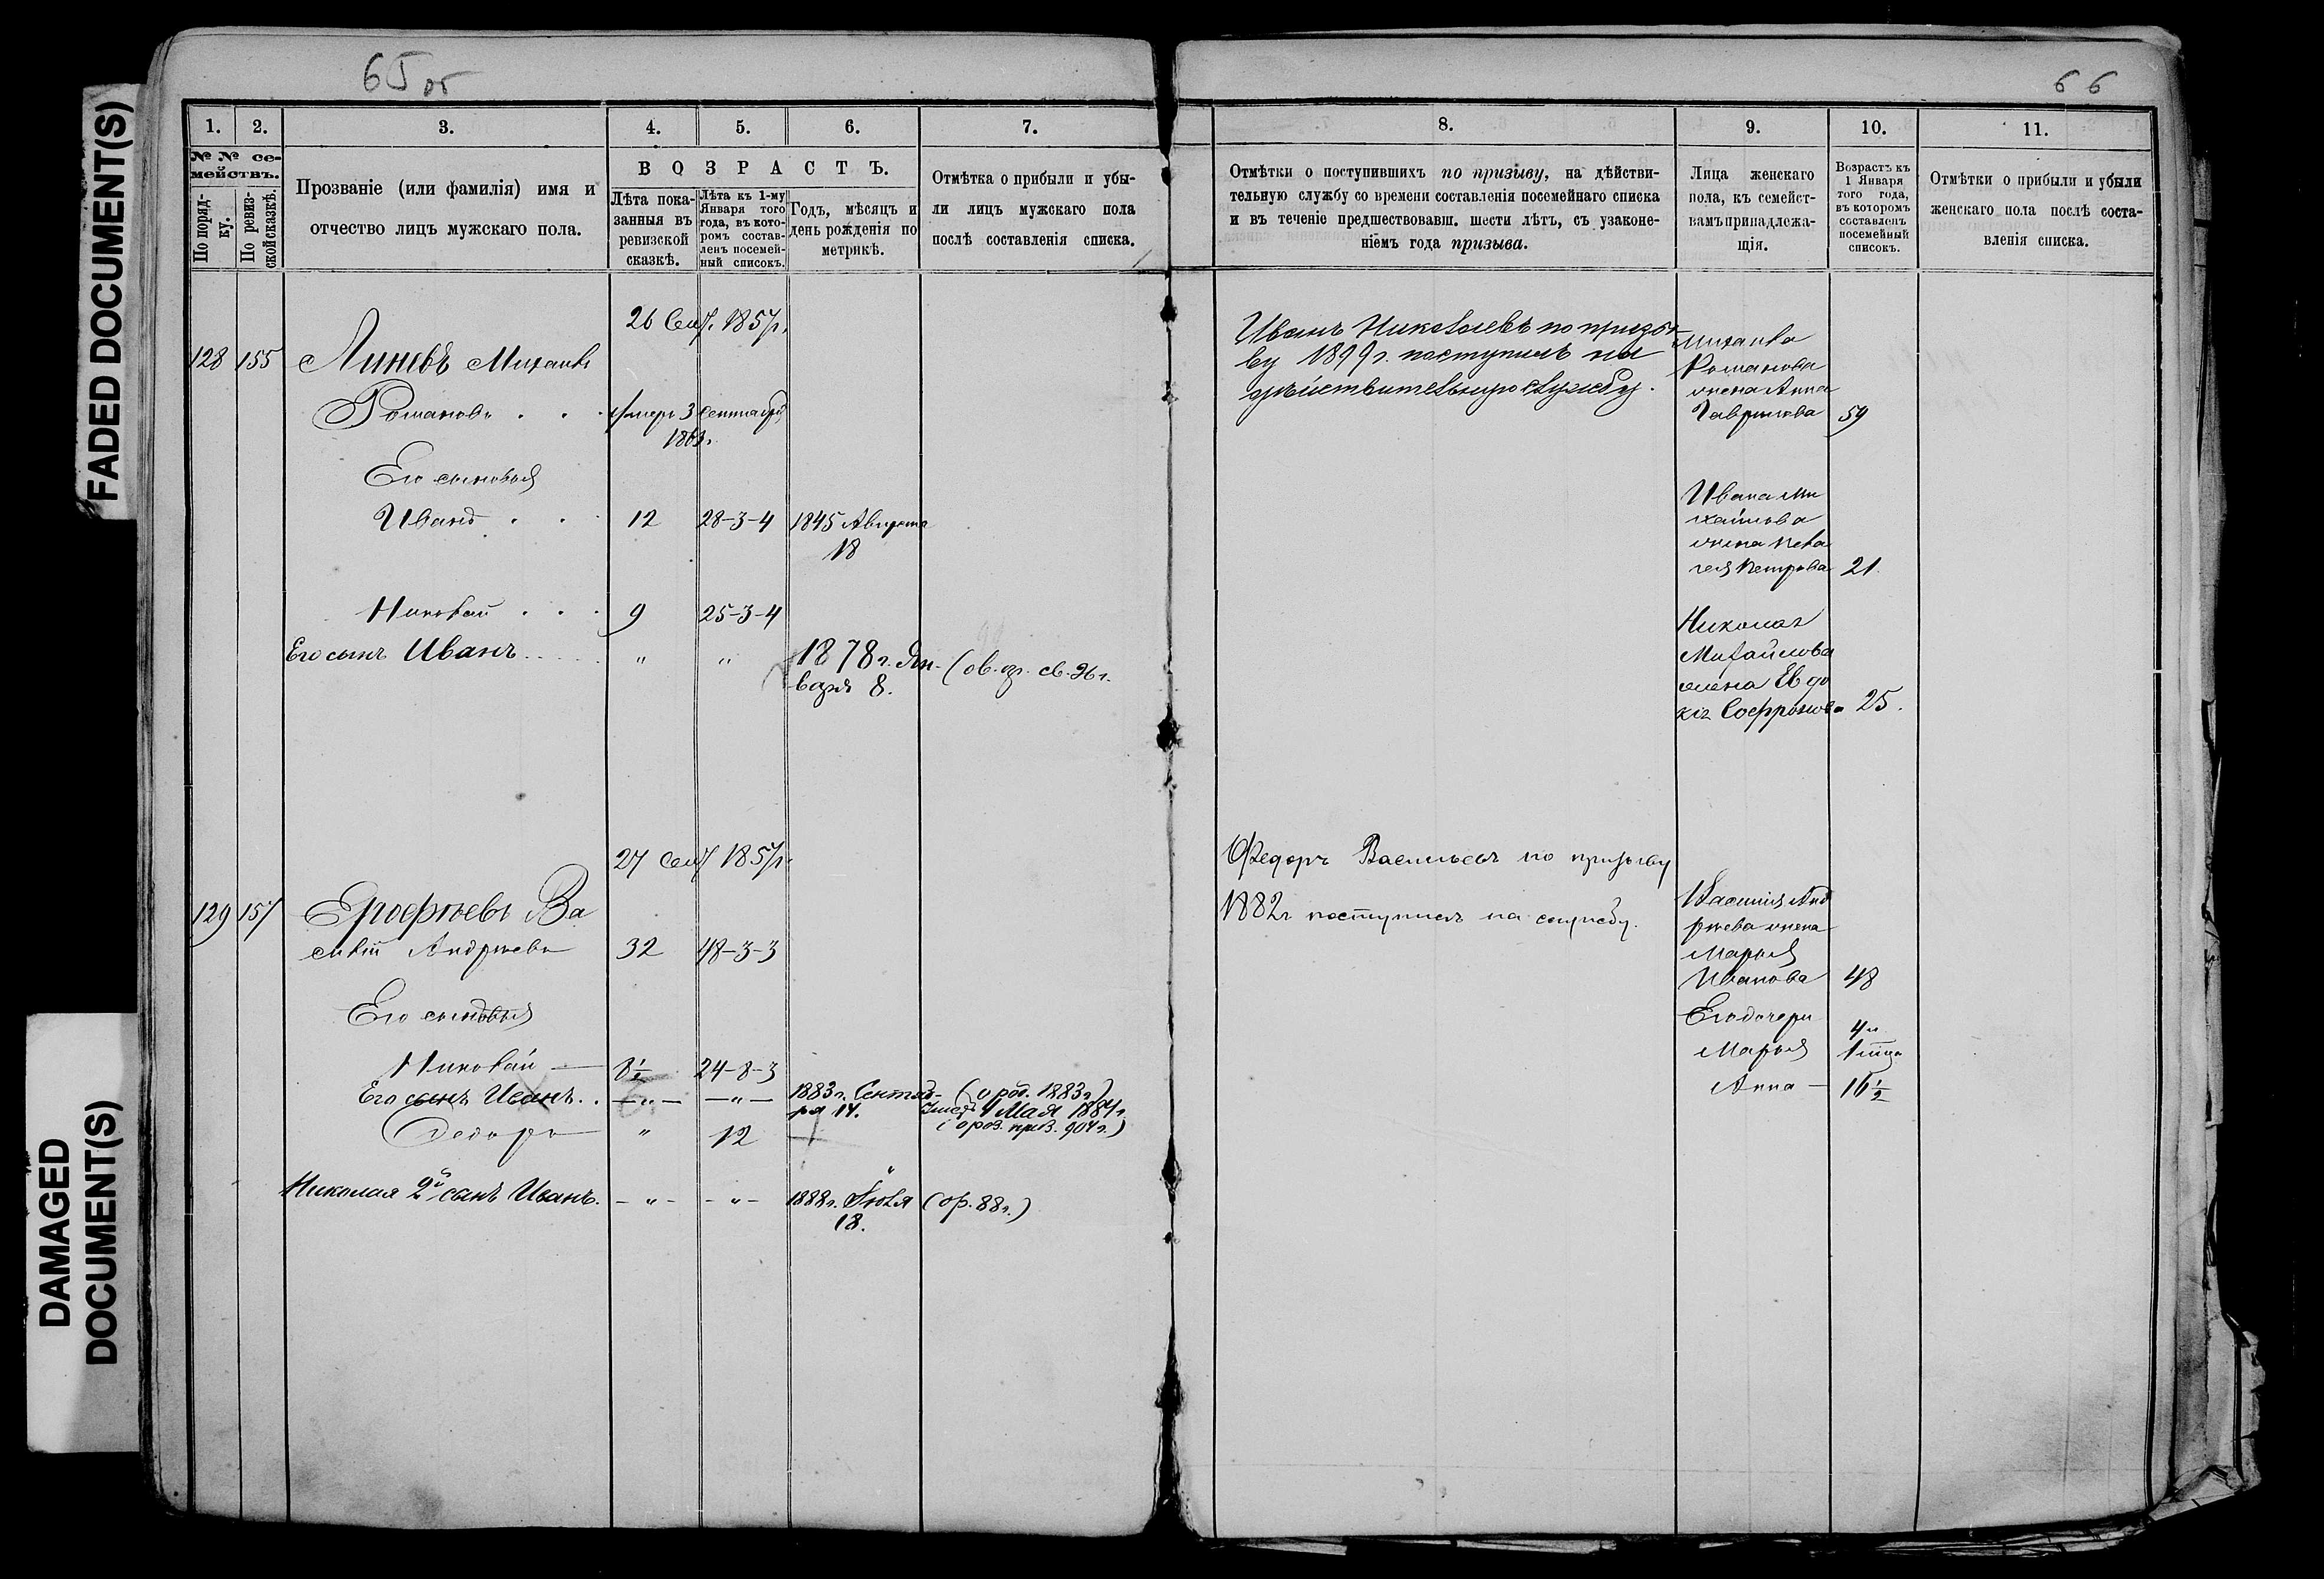 FADED DOCUMENT(S)
DAMAGED
DOCUMENT(S)
65 об
1. 2. 3. 4. 5. 6. 7.
№ № се-
мействъ.
По поряд-
ку.
По ревиз-
ской сказкѣ.
Прозваніе (или фамилія) имя и
отчество лицъ мужскаго пола.
ВОЗРАСТЪ.
Лѣта пока-
занныя въ
ревизской
сказкѣ.
Лѣта къ 1-му
Января того
года, въ кото-
ромъ состав-
ленъ посемей-
ный списокъ.
Годъ, мѣсяцъ и
день рожденія по
метрикѣ.
Отмѣтка о прибыли и убы-
ли лицъ мужскаго пола
послѣ составленія списка.
26 Сент. 1857г.
128 155 Линевъ Михаилъ
Романовъ . . умеръ 3 сентября
1863г.
Его сыновья
Иванъ . . 12 28-3-4 1845 Августа
18
Николай . . . 9 25-3-4
Его сынъ Иванъ..... " " 1878 г. Ян-
варя 8.
27 Сент 1857г.
129 157 Ерофѣевъ Ва
силій Андрѣевъ 32 48-3-3
Его сыновья
Николай — 8½ 24-8-3
Его сынъ Иванъ.. —"— —"— 1883г. Сентяб-
ря 14.
(о род. 1883г)
4 Мая 1884г.
Федоръ " 12
Николая 2й сынъ Иванъ. —"— —"— 1888г. Іюля (ор. 88г.)
18.
66
8. 9. 10. 11.
Отмѣтки о поступившихъ по призыву, на дѣйстви-
тельную службу со времени составленія посемейнаго списка
и въ теченіе предшествовавш. шести лѣтъ, съ узаконе-
ніемъ года призыва.
Лица женскаго
пола, къ семейст-
вамъ принадлежа-
щія.
Возрастъ къ
1 Января
того года,
въ которомъ
составленъ
посемейный
списокъ.
Отмѣтки о прибыли и убыли
женскаго пола послѣ соста-
вленія списка.
Иванъ Николаевъ по призы-
ву 1899г. поступилъ на
дѣйствительную службу.
Михаила
Романова
жена Анна
Гаврилова 59
Ивана Ми
хайлова
жена Пела
гея Петрова 21.
Николая
Михайлова
жена Евдо
кія Софронова 25.
Федоръ Васильевъ по призыву
1882г поступилъ на службу.
Василія Анд
рѣева жена
Марья
Иванова 48
Его дочери
Марья
Анна — 16½